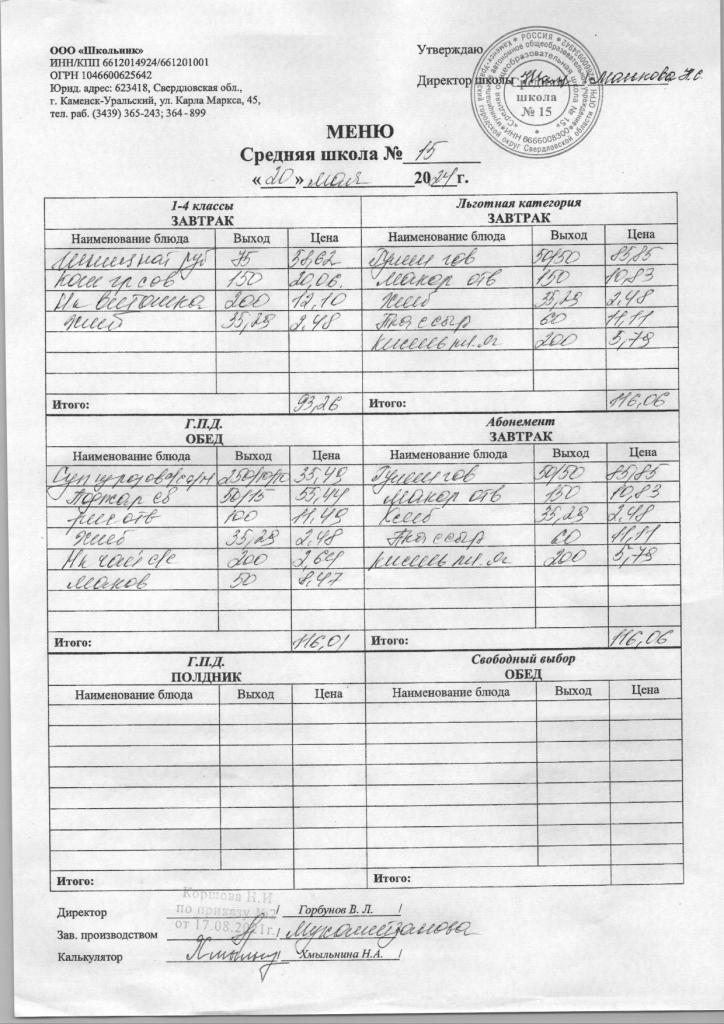 ООО «Школьник»
ИНН/КПП 6612014924/661201001
ОГРН 1046600625642
Юрид. адрес: 623418, Свердловская обл.,
г. Каменск-Уральский, ул. Карла Маркса, 45,
тел. раб. (3439) 365-243; 364 - 899
Утверждаю
Директор школы
школа
№ 15
МЕНЮ
Средняя школа № 15
« 20 » мая 2024 г.
1-4 классы
ЗАВТРАК
Наименование блюда Выход Цена
75 58,62
150 20,06
200 12,10
Хлеб 35,29 2.48
Итого: 93,26
Льготная категория
ЗАВТРАК
Наименование блюда Выход Цена
Гуляш гов 50/50 85,85
Макар отв 150 10,83
Хлеб 35,29 2.48
60 11,11
Кисель пл. яг 200 5,79
Итого: 116,06
Г.П.Д.
ОБЕД
Наименование блюда Выход Цена
35,49
Поджар св 50/15 55,44
рис отв 100 11,49
Хлеб 35,29 2,48
Н/к чай 200 2,64
50 8,47
Итого: 116,01
Абонемент
ЗАВТРАК
Наименование блюда Выход Цена
Гуляш гов 50/50 85,85
Макар отв 150 10,83
Хлеб 35,29 2,48
60 11,11
Кисель пл. яг 200 5,79
Итого: 116,06
Г.П.Д.
ПОЛДНИК
Наименование блюда Выход Цена
Итого:
Свободный выбор
ОБЕД
Наименование блюда Выход Цена
Итого:
Коршова Н.И
по приказу №2
от 17.08.2021г.
Директор / Горбунов В. Л. /
Зав. производством / Мухометзанова
Калькулятор / Хмыльнина Н.А. /